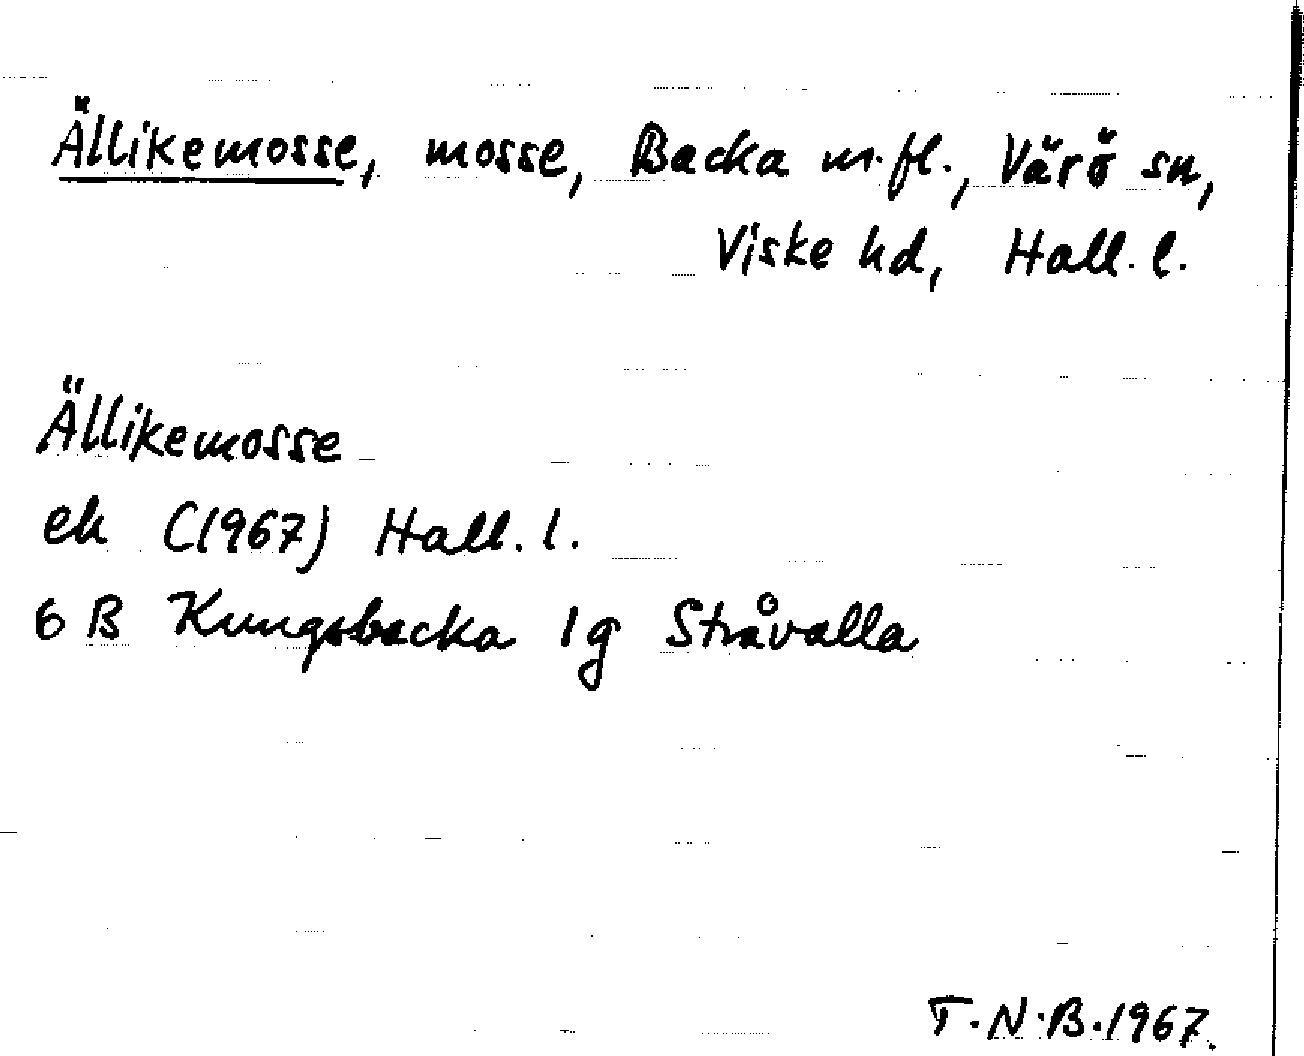 Ällikemosse, mosse, Backa m.fl., Värö sn,
Viske hd, Hall. l.
Ällikemosse
ek C(1967) Hall. l.
6 B Kungsbacka 1g Stråvalla
T.N.B.1967.